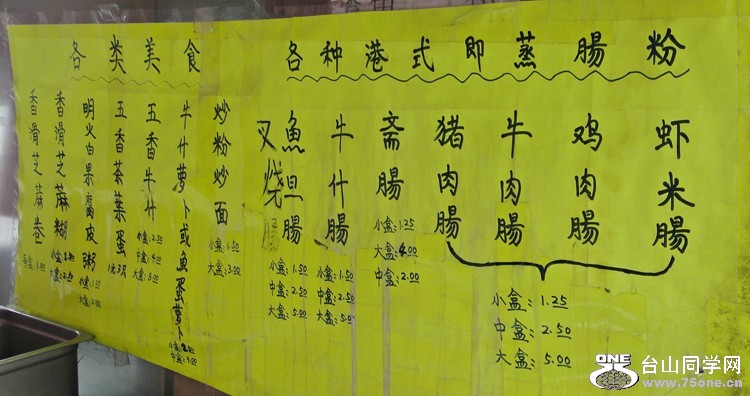 各种港式即蒸腸粉
虾米腸
鸡肉腸
牛肉腸
猪肉腸
小盒:1.25
中盒:2.50
大盒:5.00
斋腸
小盒:1.25
大盒:4.00
中盒:2.00
牛什腸
小盒:1.50
中盒:2.50
大盒:5.00
魚旦腸
小盒:1.50
中盒:2.50
大盒:5.00
叉烧腸
各类美食
炒粉炒面
小盒:1.50
大盒:3.00
牛什萝卜或魚蛋萝卜
小盒:2.00
中盒:4.00
五香牛什
小盒:2.00
中盒:4.00
大盒:8.00
五香茶葉蛋
1元3只
明火白果腐皮粥
小盒:1.00
大盒:2.00
香滑芝麻糊
大盒:2.50
香滑芝麻卷
每盒:1.00
ONE
台山同学网
www.75one.cn